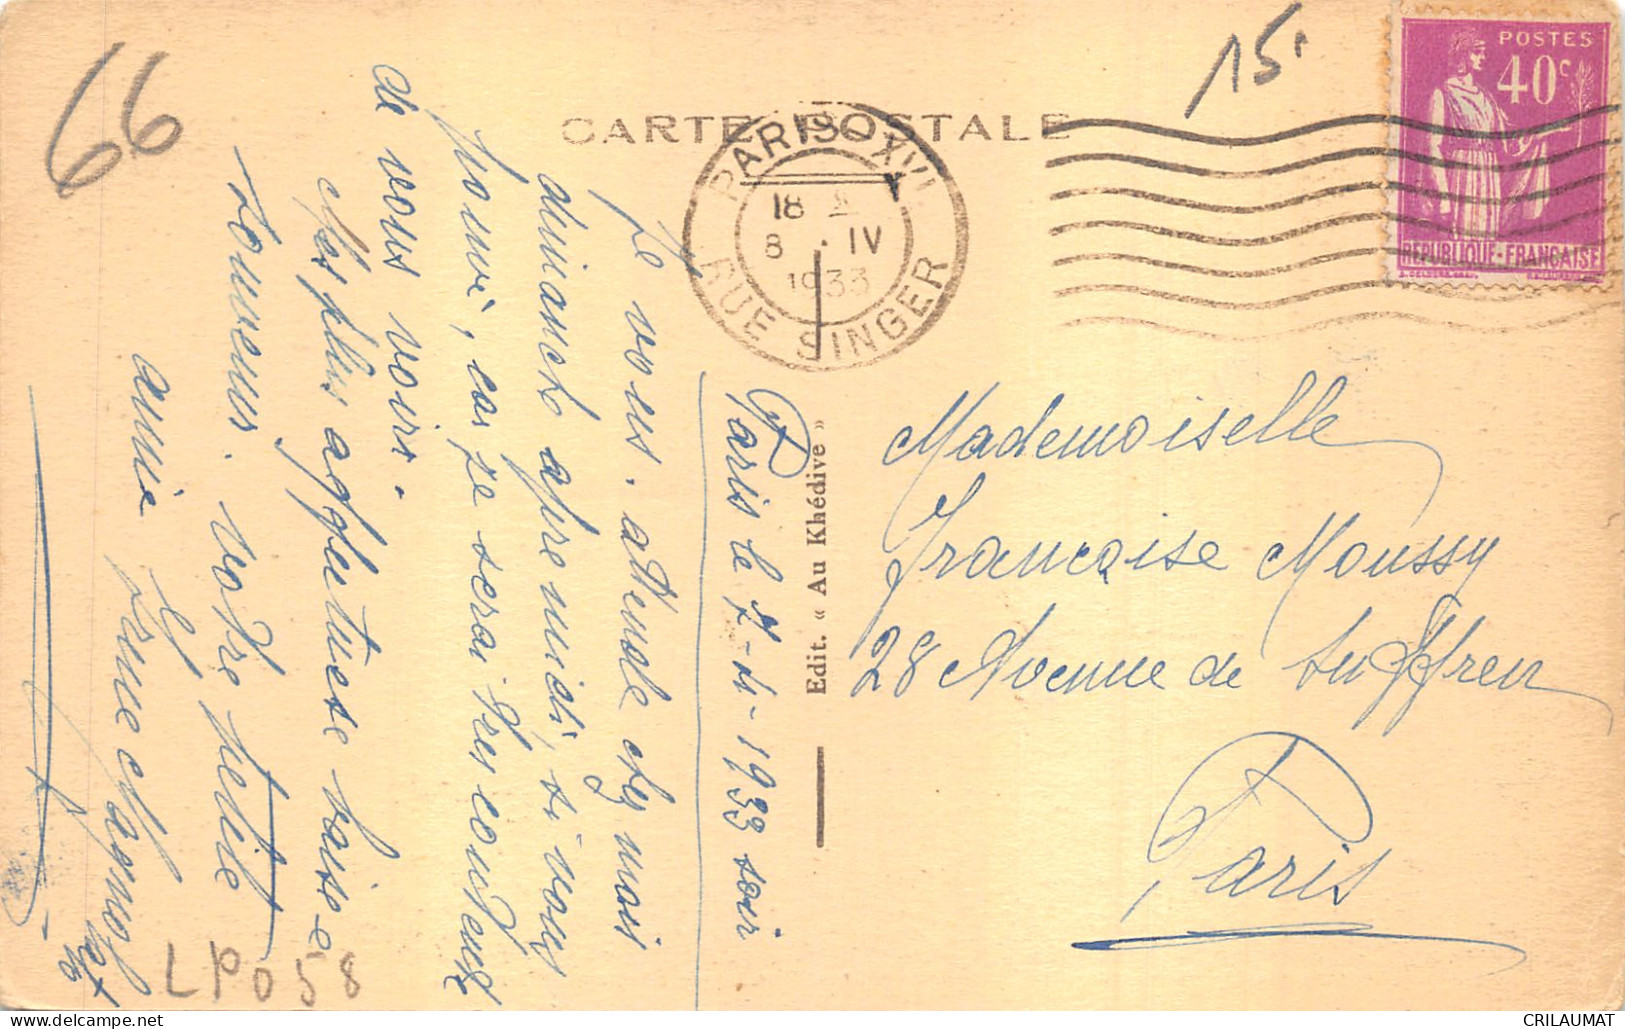 66
15.
CARTE POSTALE
PARIS - XVI
18
8 . IV
1933
RUE SINGER
POSTES
40c
REPUBLIQUE-FRANÇAISE
Edit. « Au Khédive »
Paris le 7-4-1933 soir
Je vous attends chez moi
dimanch apre midi, si vous
pouvé, car je serai tres contense
de vous voir.
Mes plus affectueuse baise-
votre petite
amie
Mademoiselle
Françoise Moussy
28 Avenue de Suffren
Paris
LP058
CRILAUMAT